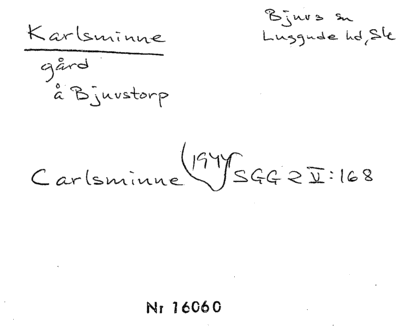 Karlsminne
gård
å Bjuvstorp
Bjuvs sn
Luggude hd, Sk
Carlsminne 1944 SGG 2 V:168
Nr 16060